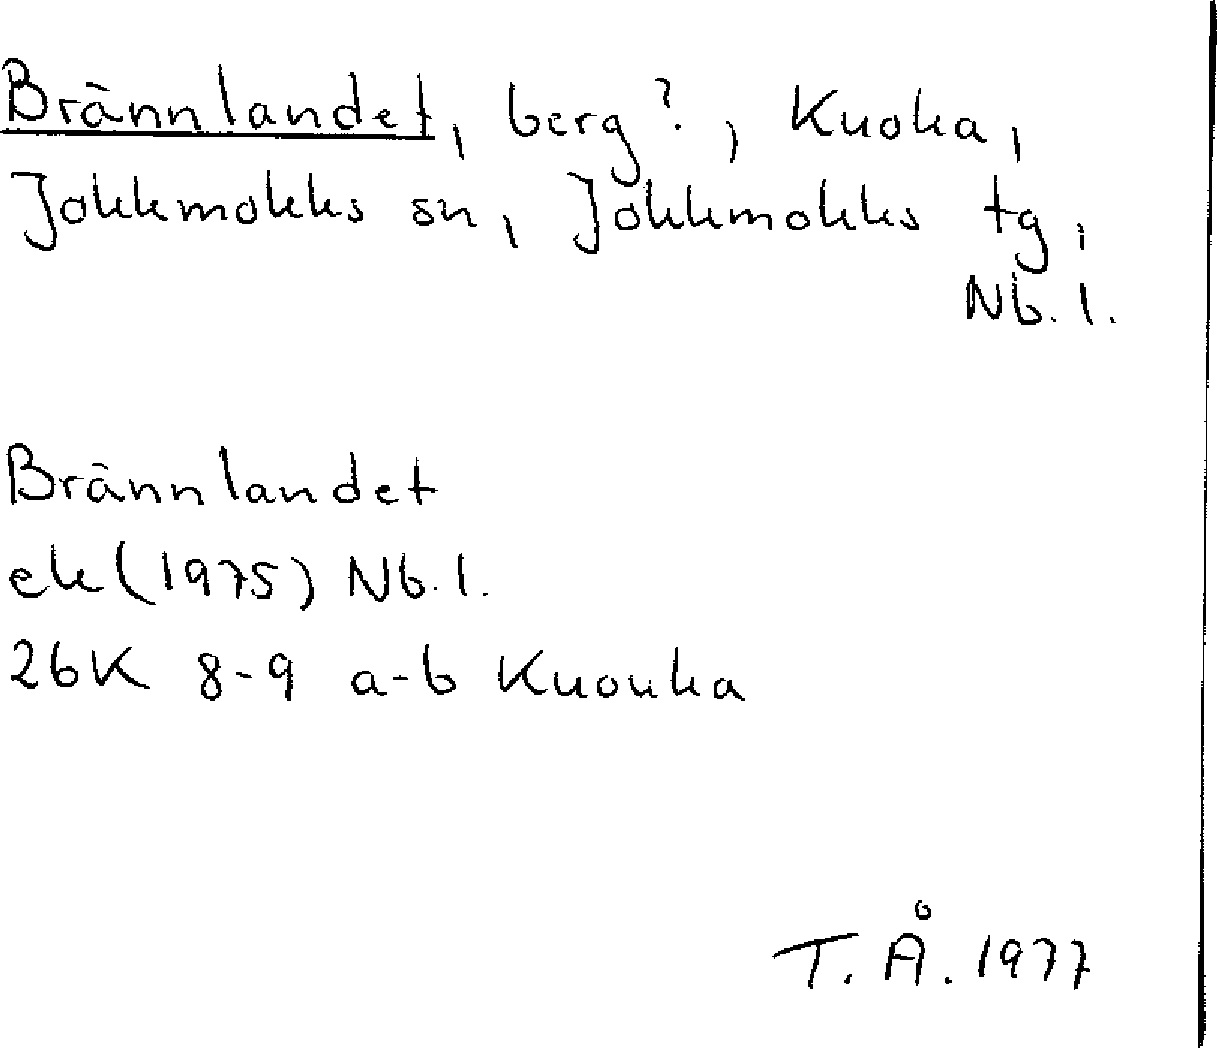 Brännlandet, berg?, Kuoka,
Jokkmokks sn, Jokkmokks tg,
Nb. l.
Brännlandet
ek (1975) Nb. l.
26K 8-9 a-b Kuouka
T. Å. 1977